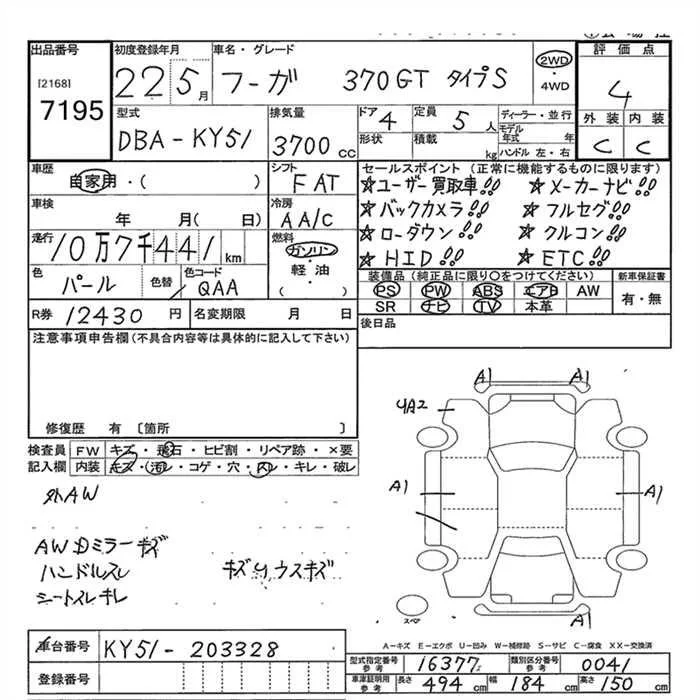 出品番号
[2168]
7195
初度登録年月
22 5月
車名・グレード
フーガ 370GT タイプS
2WD
・4WD
評価点
4
外装 内装
C C
型式
DBA-KY51
排気量
3700cc
ドア
4
定員
5人
形状
積載
kg
ディーラー・並行
モデル年式 年
ハンドル 左・右
車歴
自家用・( )
シフト
FAT
車検
年 月( 日)
冷房
AA/C
走行
10万7千441km
燃料
ガソリン
・
軽・油
( )
色
パール
色替
色コード
QAA
セールスポイント (正常に機能するものに限ります)
☆ユーザー買取車!! ☆メーカーナビ!!
☆バックカメラ!! ☆フルセグ!!
☆ローダウン!! ☆クルコン!!
☆HID!! ☆ETC!!
装備品 (純正品に限り○をつけてください)
PS PW ABS エアB AW
SR ナビ TV 本革
新車保証書
有・無
R券 12430円
名変期限 月 日
後日品
注意事項申告欄(不具合内容は具体的に記入して下さい)
修復歴 有 [箇所 ]
検査員
記入欄
FW キズ・飛石・ヒビ割・リペア跡・×要
内装 キズ・汚レ・コゲ・穴・スレ・キレ・破レ
外AW
AW Dミラーキズ
ハンドルスレ
シートスレキレ
キズウスキズ
A1 A1
4A2
A1 A1
A1
スペア
A-キズ E-エクボ U-凹み W-補修跡 S-サビ C-腐食 XX-交換済
車台番号 KY51-203328
登録番号
型式指定番号
参考
16377
類別区分番号
参考
0041
車庫証明用
参考
長さ 494cm 幅 184cm 高さ 150cm